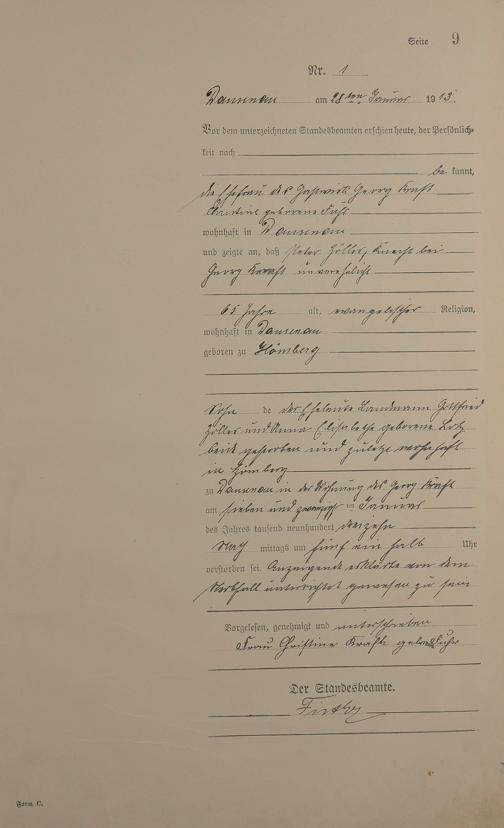 Seite 9
Nr. 1
Dausenau am 28ten Januar 1913.
Vor dem unterzeichneten Standesbeamten erschien heute, der Persönlich-
keit nach
be kannt,
die Ehefrau des Gastwirts Georg Kraft
geborene Fuhr
wohnhaft in Dausenau
und zeigte an, daß Peter Zöller, Knecht bei
Georg Kraft unverehelicht
65 Jahre alt, evangelischer Religion,
wohnhaft in Dausenau
geboren zu Hömberg
Sohn de der Eheleute Landmann Gottfried
Zöller und Anna Elisabethe geborene
beide gestorben und zuletzt wohnhaft
in Hömberg
zu Dausenau in der Wohnung des Georg Kraft
am sieben und zwanzigst en Januar
des Jahres tausend neunhundert dreizehn
Nach mittags um fünf ein halb Uhr
verstorben sei. Anzeigende erklärte von dem
Sterbfall unterrichtet gewesen zu sein
Vorgelesen, genehmigt und unterschrieben
Frau Christine Kraft geborene Fuhr
Der Standesbeamte.
Form. C.